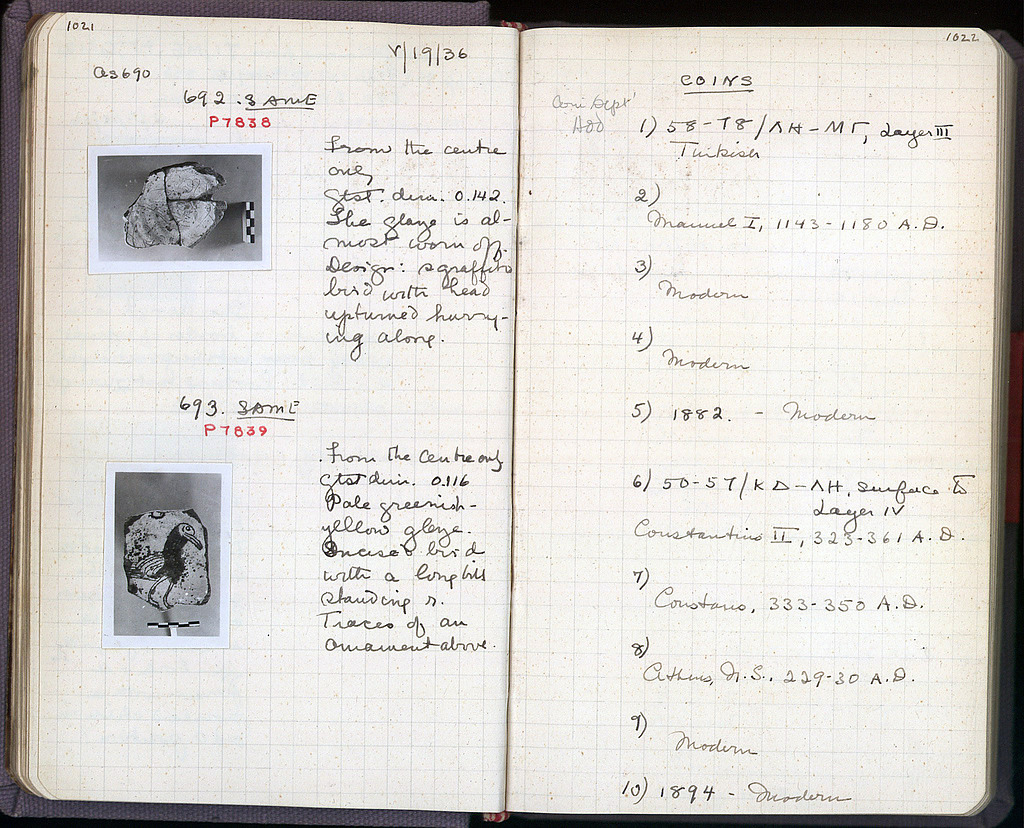 1021
V/19/36
As 690
692. SAME
P7838
From the centre
only
Gtst. dim. 0.142.
The glaze is al-
most worn off.
Design: sgraffito
bird with head
upturned hurry-
ing along.
693. SAME
P7839
From the centre only
Gtst dim. 0.116
Pale greenish-
yellow glaze.
Incised bird
with a long bill
standing r.
Traces of an
ornament above.
1022
COINS
Coin Dept'
Add
1) 58-78/ΛΗ-ΜΓ, Layer III
Turkish
2)
Manuel I, 1143-1180 A.D.
3)
Modern
4)
Modern
5) 1882. - Modern
6) 50-57/ΚΔ-ΛΗ, surface to
Layer IV
Constantius II, 323-361 A.D.
7)
Constans, 333-350 A.D.
8)
Athens, N.S., 229-30 A.D.
9)
Modern
10) 1894 - Modern